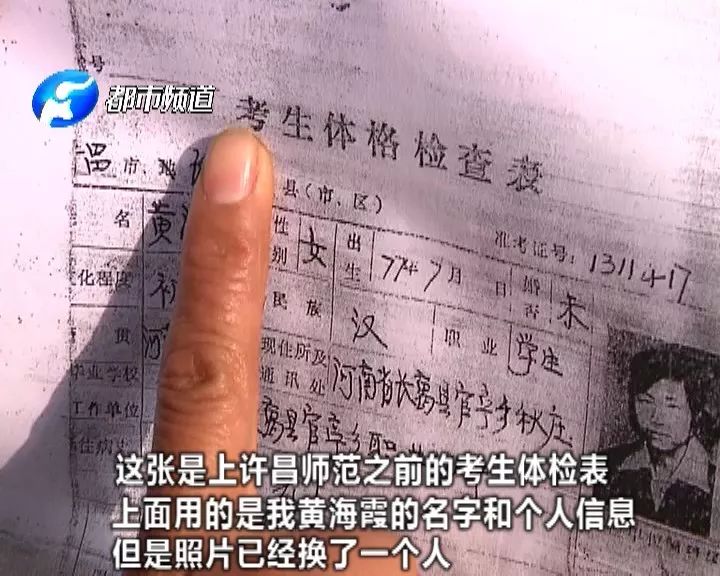 号
都市频道
考生体格检查表
昌市、地 县(市、区)
准考证号：1311417
名 黄 性别 女 出生 77年7月 日 婚否 未
化程度 初 民族 汉 职业 学生
贯 河 现住所及通讯处 河南省长葛县官亭乡秋庄
毕业学校
工作单位 葛县官亭乡职
住病史
这张是上许昌师范之前的考生体检表
上面用的是我黄海霞的名字和个人信息
但是照片已经换了一个人